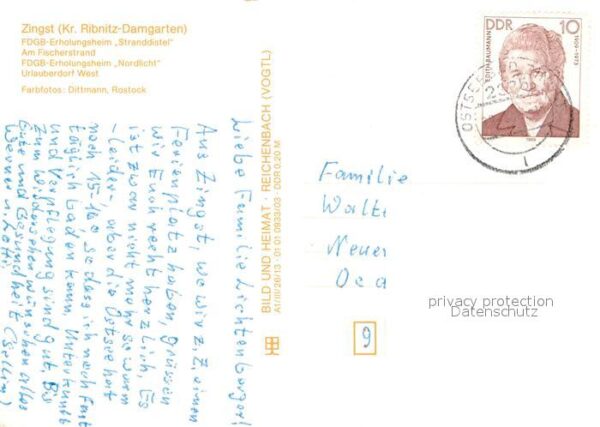 Zingst (Kr. Ribnitz-Damgarten)
FDGB-Erholungsheim „Stranddistel"
Am Fischerstrand
FDGB-Erholungsheim „Nordlicht"
Urlauberdorf West
Farbfotos: Dittmann, Rostock
Liebe Familie Lichtenberger!
Aus Zingst, wo wir z. Z. einen
Ferienplatz haben, grüssen
wir Euch recht herzlich. Es
ist zwar nicht mehr so warm
- leider -, aber die Ostsee hat
noch 15-16° so dass ich noch fast
täglich baden kann. Unterkunft
und Verpflegung sind gut. Bis
zum Wiedersehen wünschen alles
Gute und Gesundheit
Werner u. Lotti
BILD UND HEIMAT · REICHENBACH (VOGTL)
A1/III/26/13 · 01 01 0933/03 · DDR 0,20 M
DDR 10
EDITH BAUMANN
1909-1973
1989
OSTSEEBAD
Familie
Walt
Neuer
Oca
privacy protection
Datenschutz
9